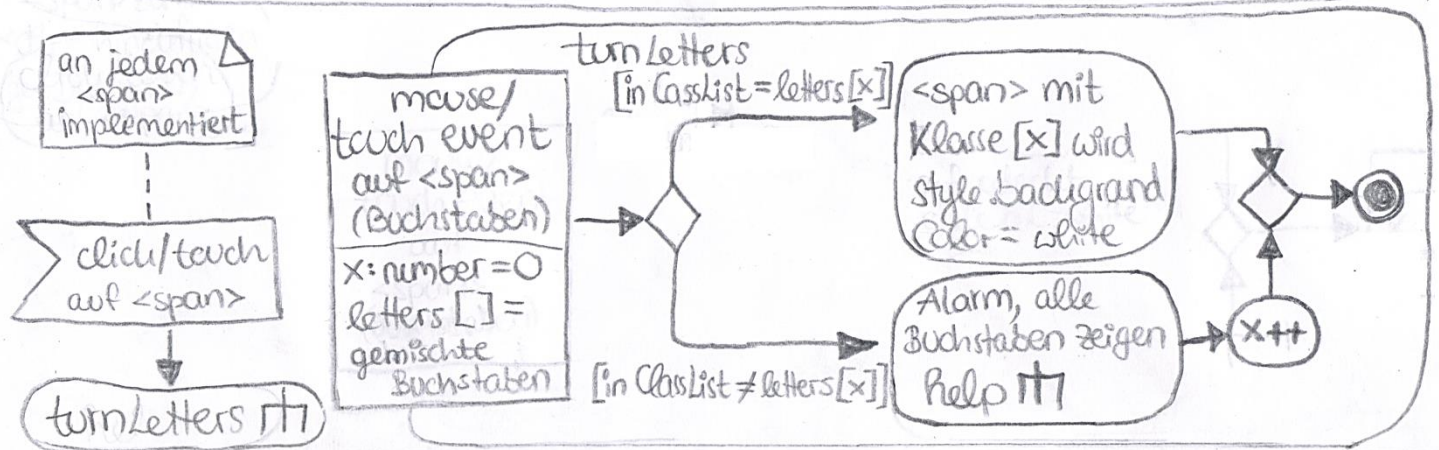 an jedem
<span>
implementiert
click/touch
auf <span>
turnLetters
mouse/
touch event
auf <span>
(Buchstaben)
x: number = 0
letters [] =
gemischte
Buchstaben
turnLetters
[in CassList = letters[x]]
<span> mit
Klasse [x] wird
style.backgrand
Color = white
[in ClassList ≠ letters[x]]
Alarm, alle
Buchstaben zeigen
help
x++